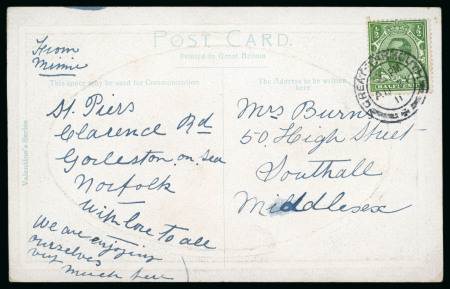 POST CARD.
Printed in Great Britain
This space may be used for Communication
The Address to be written here.
Valentine's Series
From
Mimie
St. Piers
Clarence Rd
Gorleston on Sea
Norfolk
With love to all
We are enjoying
ourselves
very much here
Mrs Burn
50, High Street
Southall
Middlesex
HALFPENNY
GREAT YARMOUTH
11